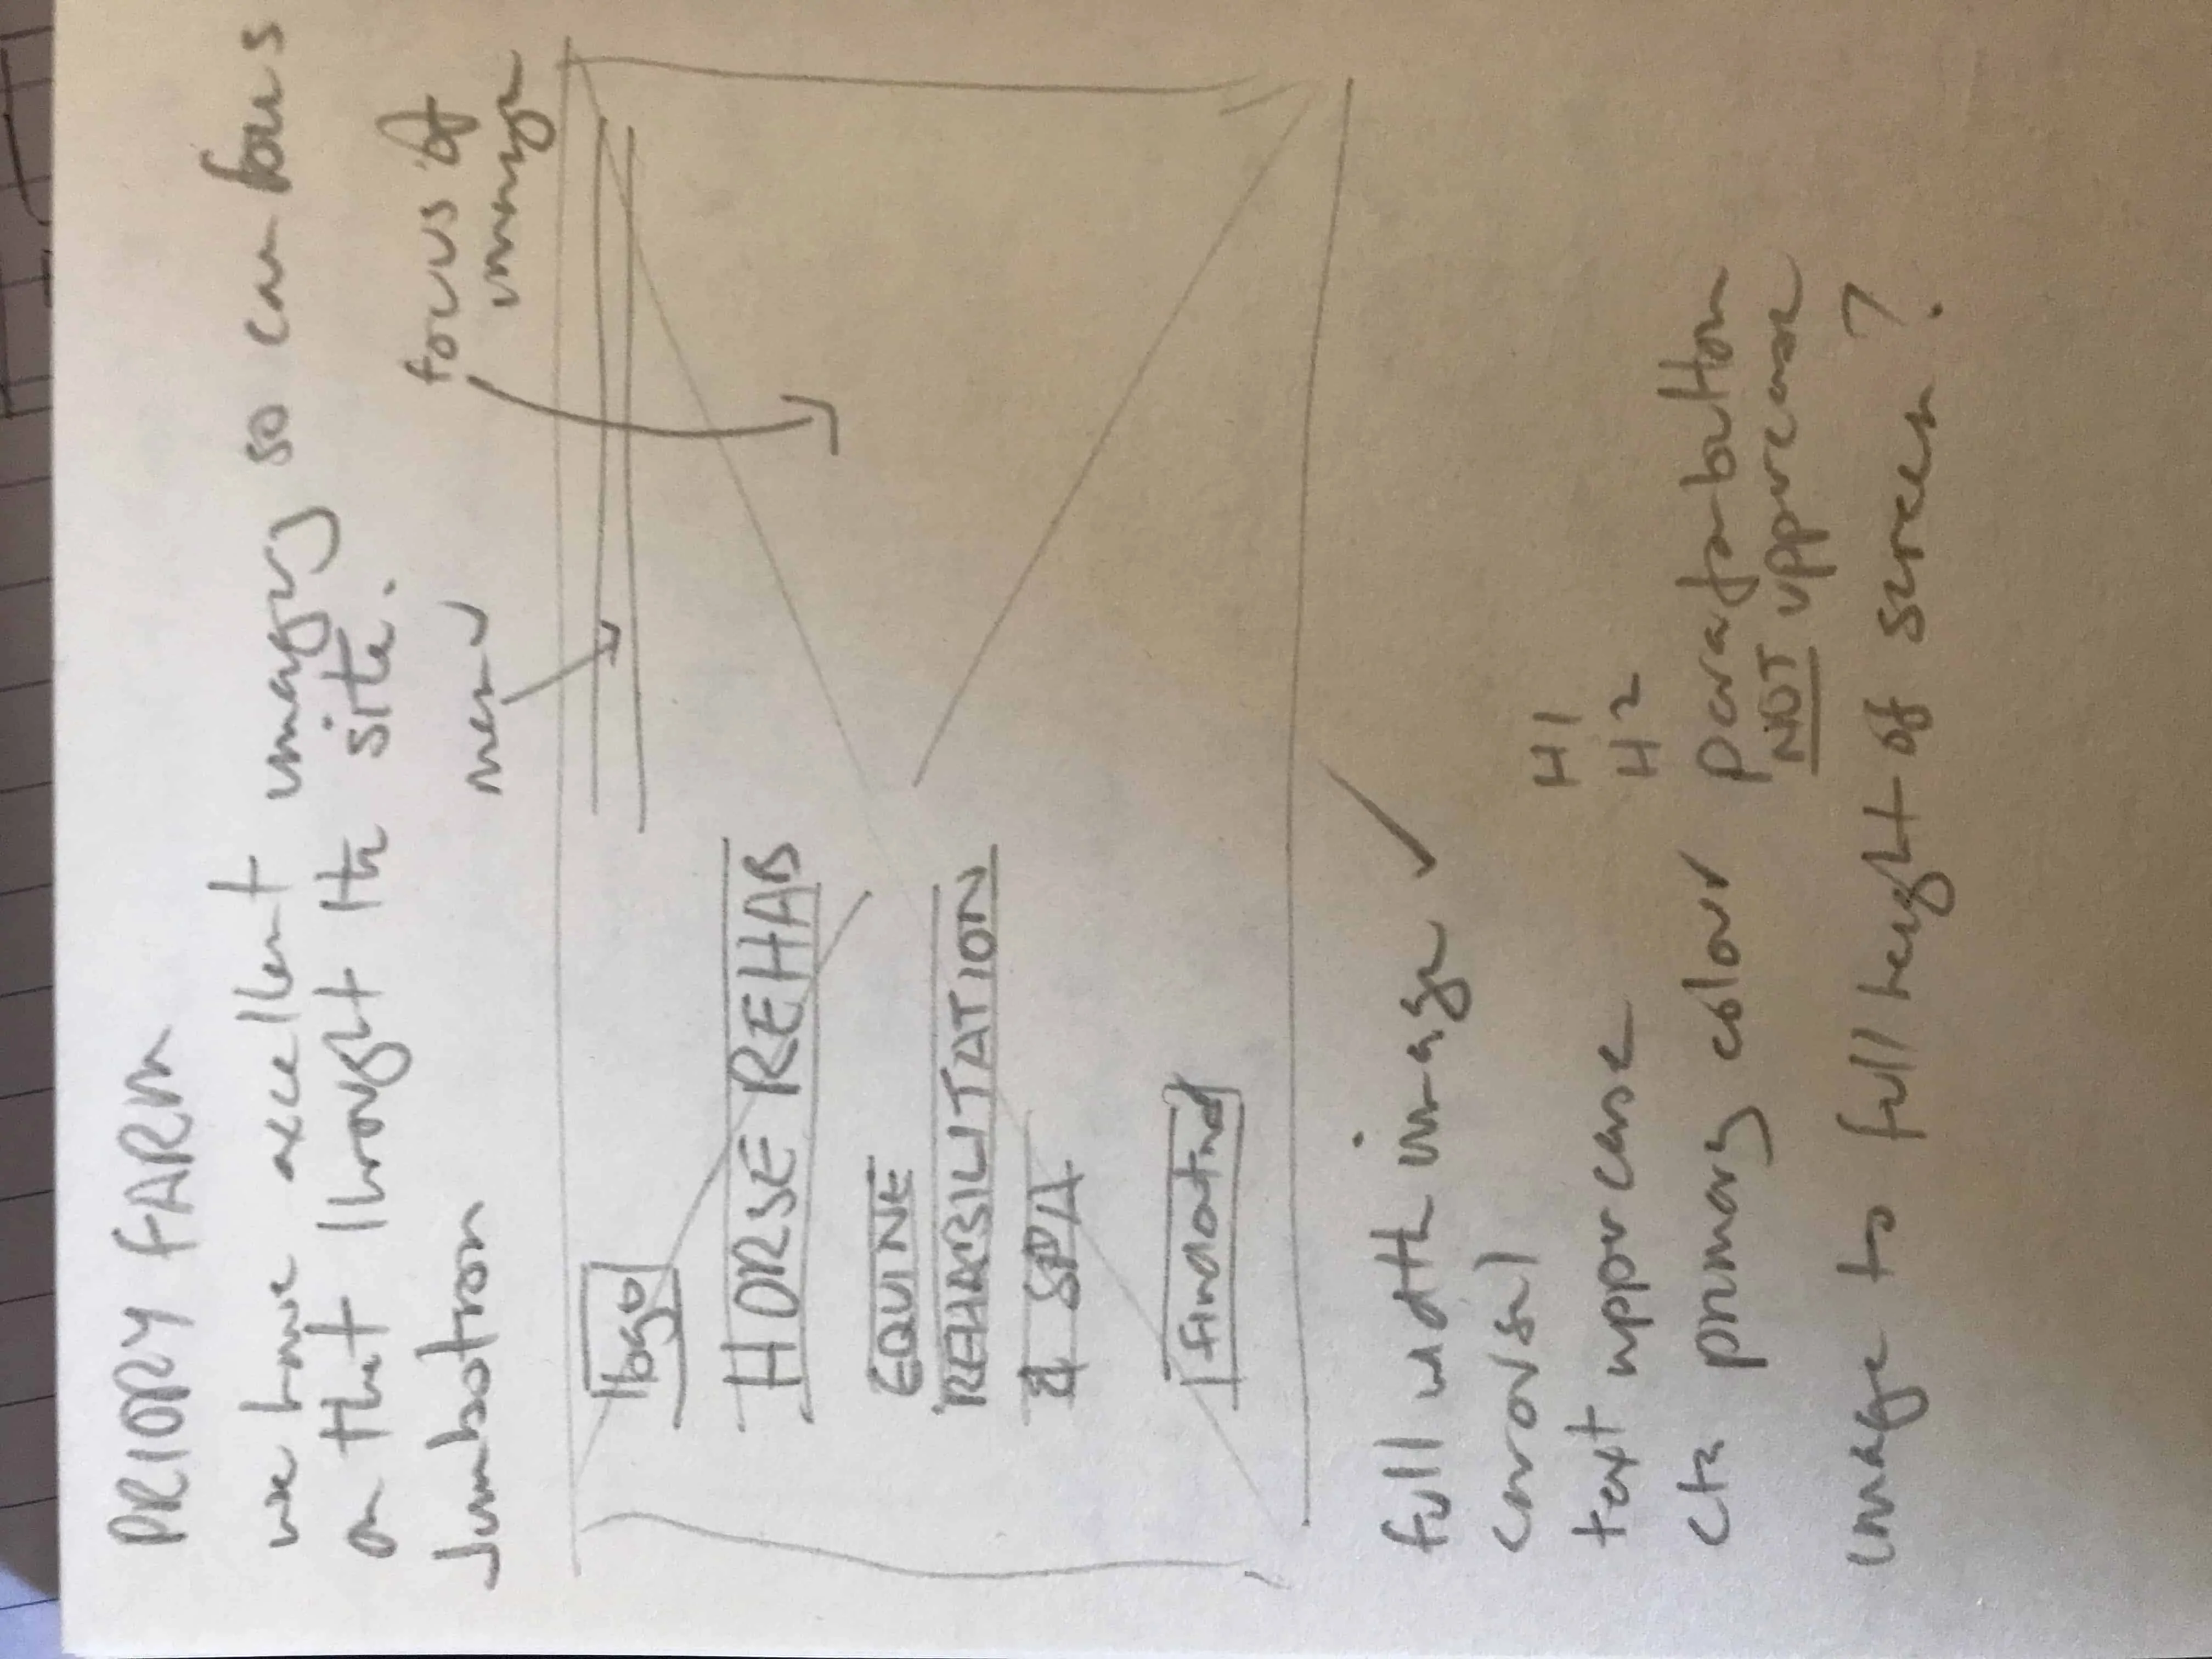 PRIORY FARM
we have excellent imagery so can focus
on that throught the site.
Jumbotron
menu
focus of
image
logo
HORSE REHAB
EQUINE
REHABILITATION
& SPA
find out more
full width image
carousel
text upper case H1
H2
cta primary colour para for button
NOT uppercase
image to full height of screen?